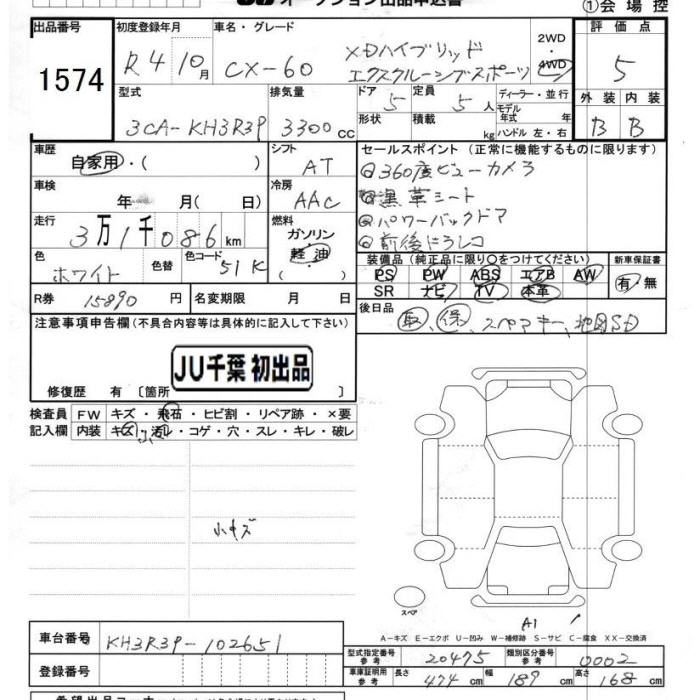 オークション出品申込書
①会場控
出品番号 初度登録年月 車名・グレード 2WD 評価点
1574 R4 10月 CX-60 XDハイブリッド エクスクルーシブスポーツ 4WD 5
型式 排気量 ドア 5 定員 5人 ディーラー・並行 外装 内装
3CA-KH3R3P 3300cc 形状 積載 kg モデル年式 年 ハンドル 左・右 B B
車歴 シフト セールスポイント（正常に機能するものに限ります）
自家用・( ) AT ◎360度ビューカメラ
車検 冷房 ◎黒革シート
年 月(日) AAC ◎パワーバックドア
走行 燃料 ◎前後ドラレコ
3万1千086km ガソリン
軽油
( )
色 色替 色コード 装備品（純正品に限り○をつけてください） 新車保証書
ホワイト 51K PS PW ABS エアB AW 有・無
SR ナビ TV 本革
R券 15890円 名変期限 月 日 後日品
取、保、スペアキー、地図SD
注意事項申告欄（不具合内容等は具体的に記入して下さい）
JU千葉 初出品
修復歴 有〔箇所 〕
検査員 FW キズ・飛石・ヒビ割・リペア跡・×要
記入欄 内装 キズ・汚レ・コゲ・穴・スレ・キレ・破レ
小キズ
スペア
A1
A－キズ E－エクボ U－凹み W－補修跡 S－サビ C－腐食 XX－交換済
車台番号 KH3R3P-102651
型式指定番号 参考 20475 類別区分番号 参考 0002
登録番号
車庫証明用 参考 長さ 474cm 幅 189cm 高さ 168cm